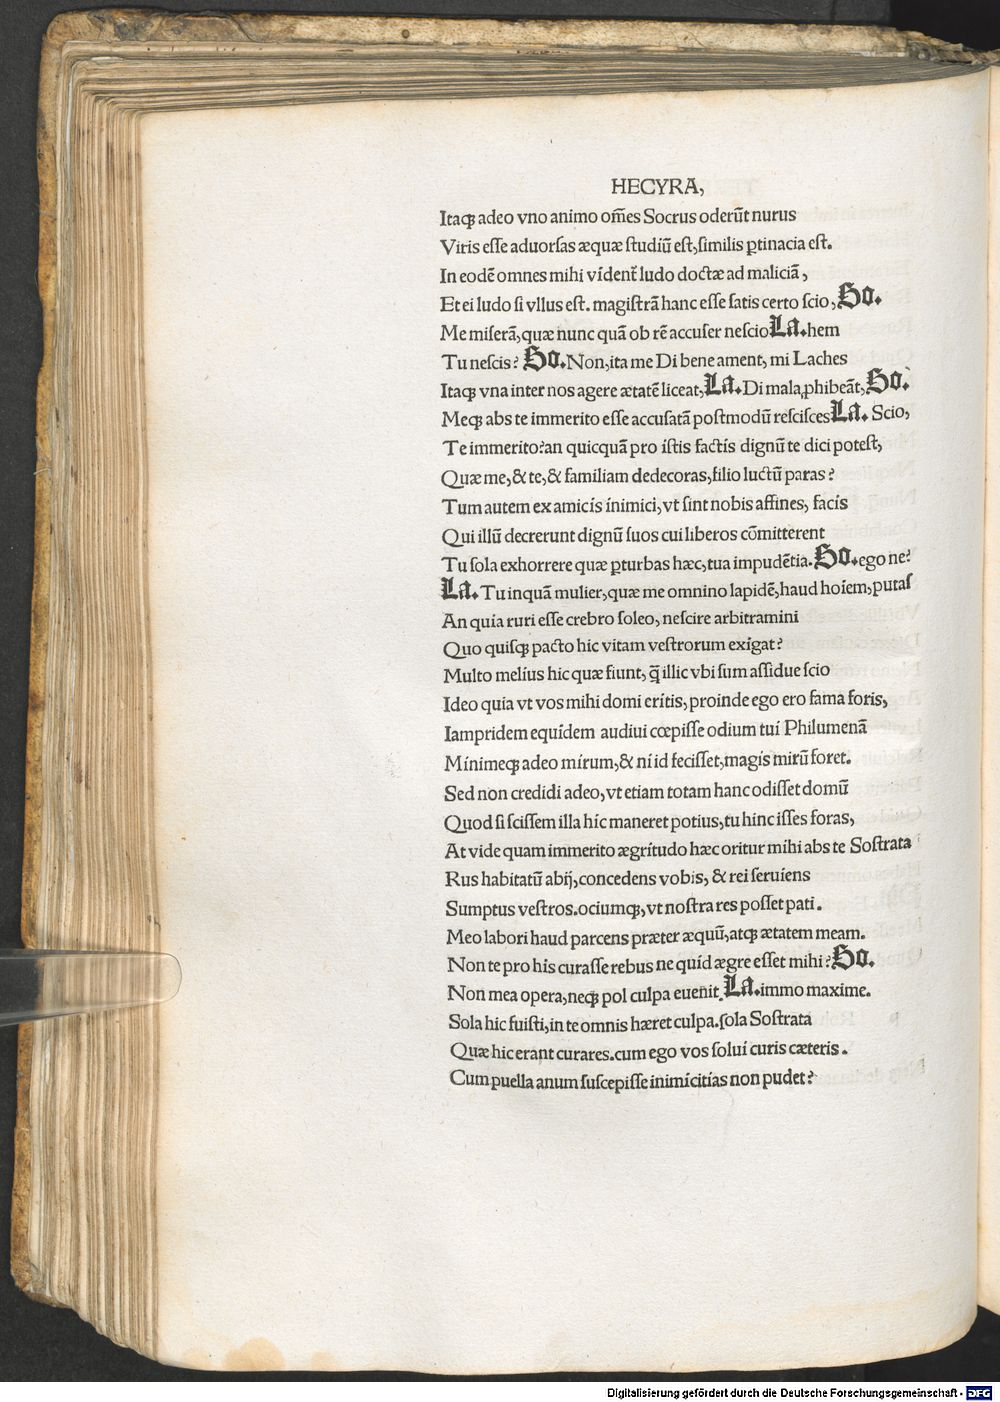 HECYRA,
Itaqꝫ adeo vno animo om̃es Socrus oderũt nurus
Viris eſſe aduorſas æquæ ſtudiũ eſt, ſimilis ꝑtinacia eſt.
In eodẽ omnes mihi vident̃ ludo doctæ ad maliciã,
Et ei ludo ſi vllus eſt. magiſtrã hanc eſſe ſatis certo ſcio, So.
Me miſerã, quæ nunc quã ob rẽ accuſer neſcio La. hem
Tu neſcis? So. Non, ita me Di bene ament, mi Laches
Itaqꝫ vna inter nos agere ætatẽ liceat, La. Di mala ꝓhibeãt, So.
Meqꝫ abs te immerito eſſe accuſatã poſtmodũ reſciſces La. Scio,
Te immerito? an quicquã pro iſtis factis dignũ te dici poteſt,
Quæ me, & te, & familiam dedecoras, filio luctũ paras?
Tum autem ex amicis inimici, vt ſint nobis affines, facis
Qui illũ decrerunt dignũ ſuos cui liberos cõmitterent
Tu ſola exhorrere quæ ꝑturbas hæc, tua impudẽtia. So. ego ne?
La. Tu inquã mulier, quæ me omnino lapidẽ, haud hoiem, putas
An quia ruri eſſe crebro ſoleo, neſcire arbitramini
Quo quiſqꝫ pacto hic vitam veſtrorum exigat?
Multo melius hic quæ fiunt, q̃ illic vbi ſum aſſidue ſcio
Ideo quia vt vos mihi domi eritis, proinde ego ero fama foris,
Iampridem equidem audiui cœpiſſe odium tui Philumenã
Minimeqꝫ adeo mirum, & ni id feciſſet, magis mirũ foret.
Sed non credidi adeo, vt etiam totam hanc odiſſet domũ
Quod ſi ſciſſem illa hic maneret potius, tu hinc iſſes foras,
At vide quam immerito ægritudo hæc oritur mihi abs te Soſtrata
Rus habitatũ abij, concedens vobis, & rei ſeruiens
Sumptus veſtros. ociumqꝫ, vt noſtra res poſſet pati.
Meo labori haud parcens præter æquũ, atqꝫ ætatem meam.
Non te pro his curaſſe rebus ne quid ægre eſſet mihi? So.
Non mea opera, neqꝫ pol culpa euenit. La. immo maxime.
Sola hic fuiſti, in te omnis hæret culpa. ſola Soſtrata
Quæ hic erant curares. cum ego vos ſolui curis cæteris.
Cum puella anum ſuſcepiſſe inimicitias non pudet?
Digitalisierung gefördert durch die Deutsche Forschungsgemeinschaft - DFG